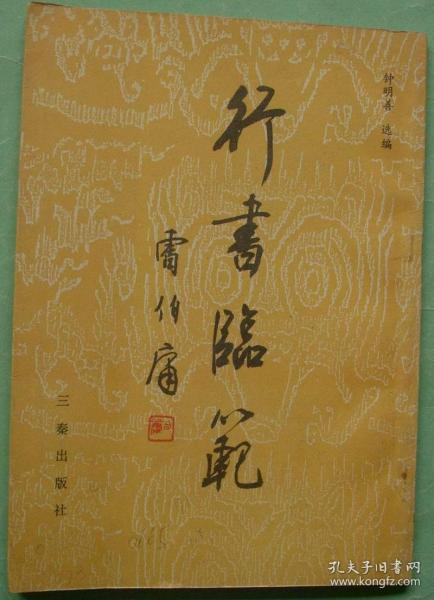 钟明善 选编
行書臨範
雷伯庸
三秦出版社
孔夫子旧书网
book.kongfz.com